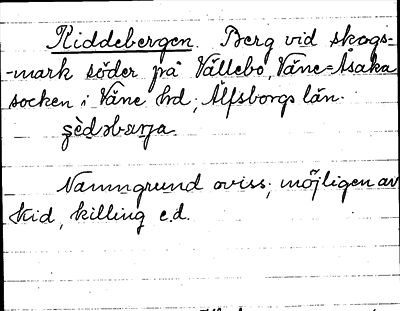 Kiddebergen. Berg vid skogs-
-mark söder på Vällebo, Väne-Åsaka
socken i Väne hd; Älfsborgs län.
Namngrund oviss; möjligen av
Kid, killing e.d.